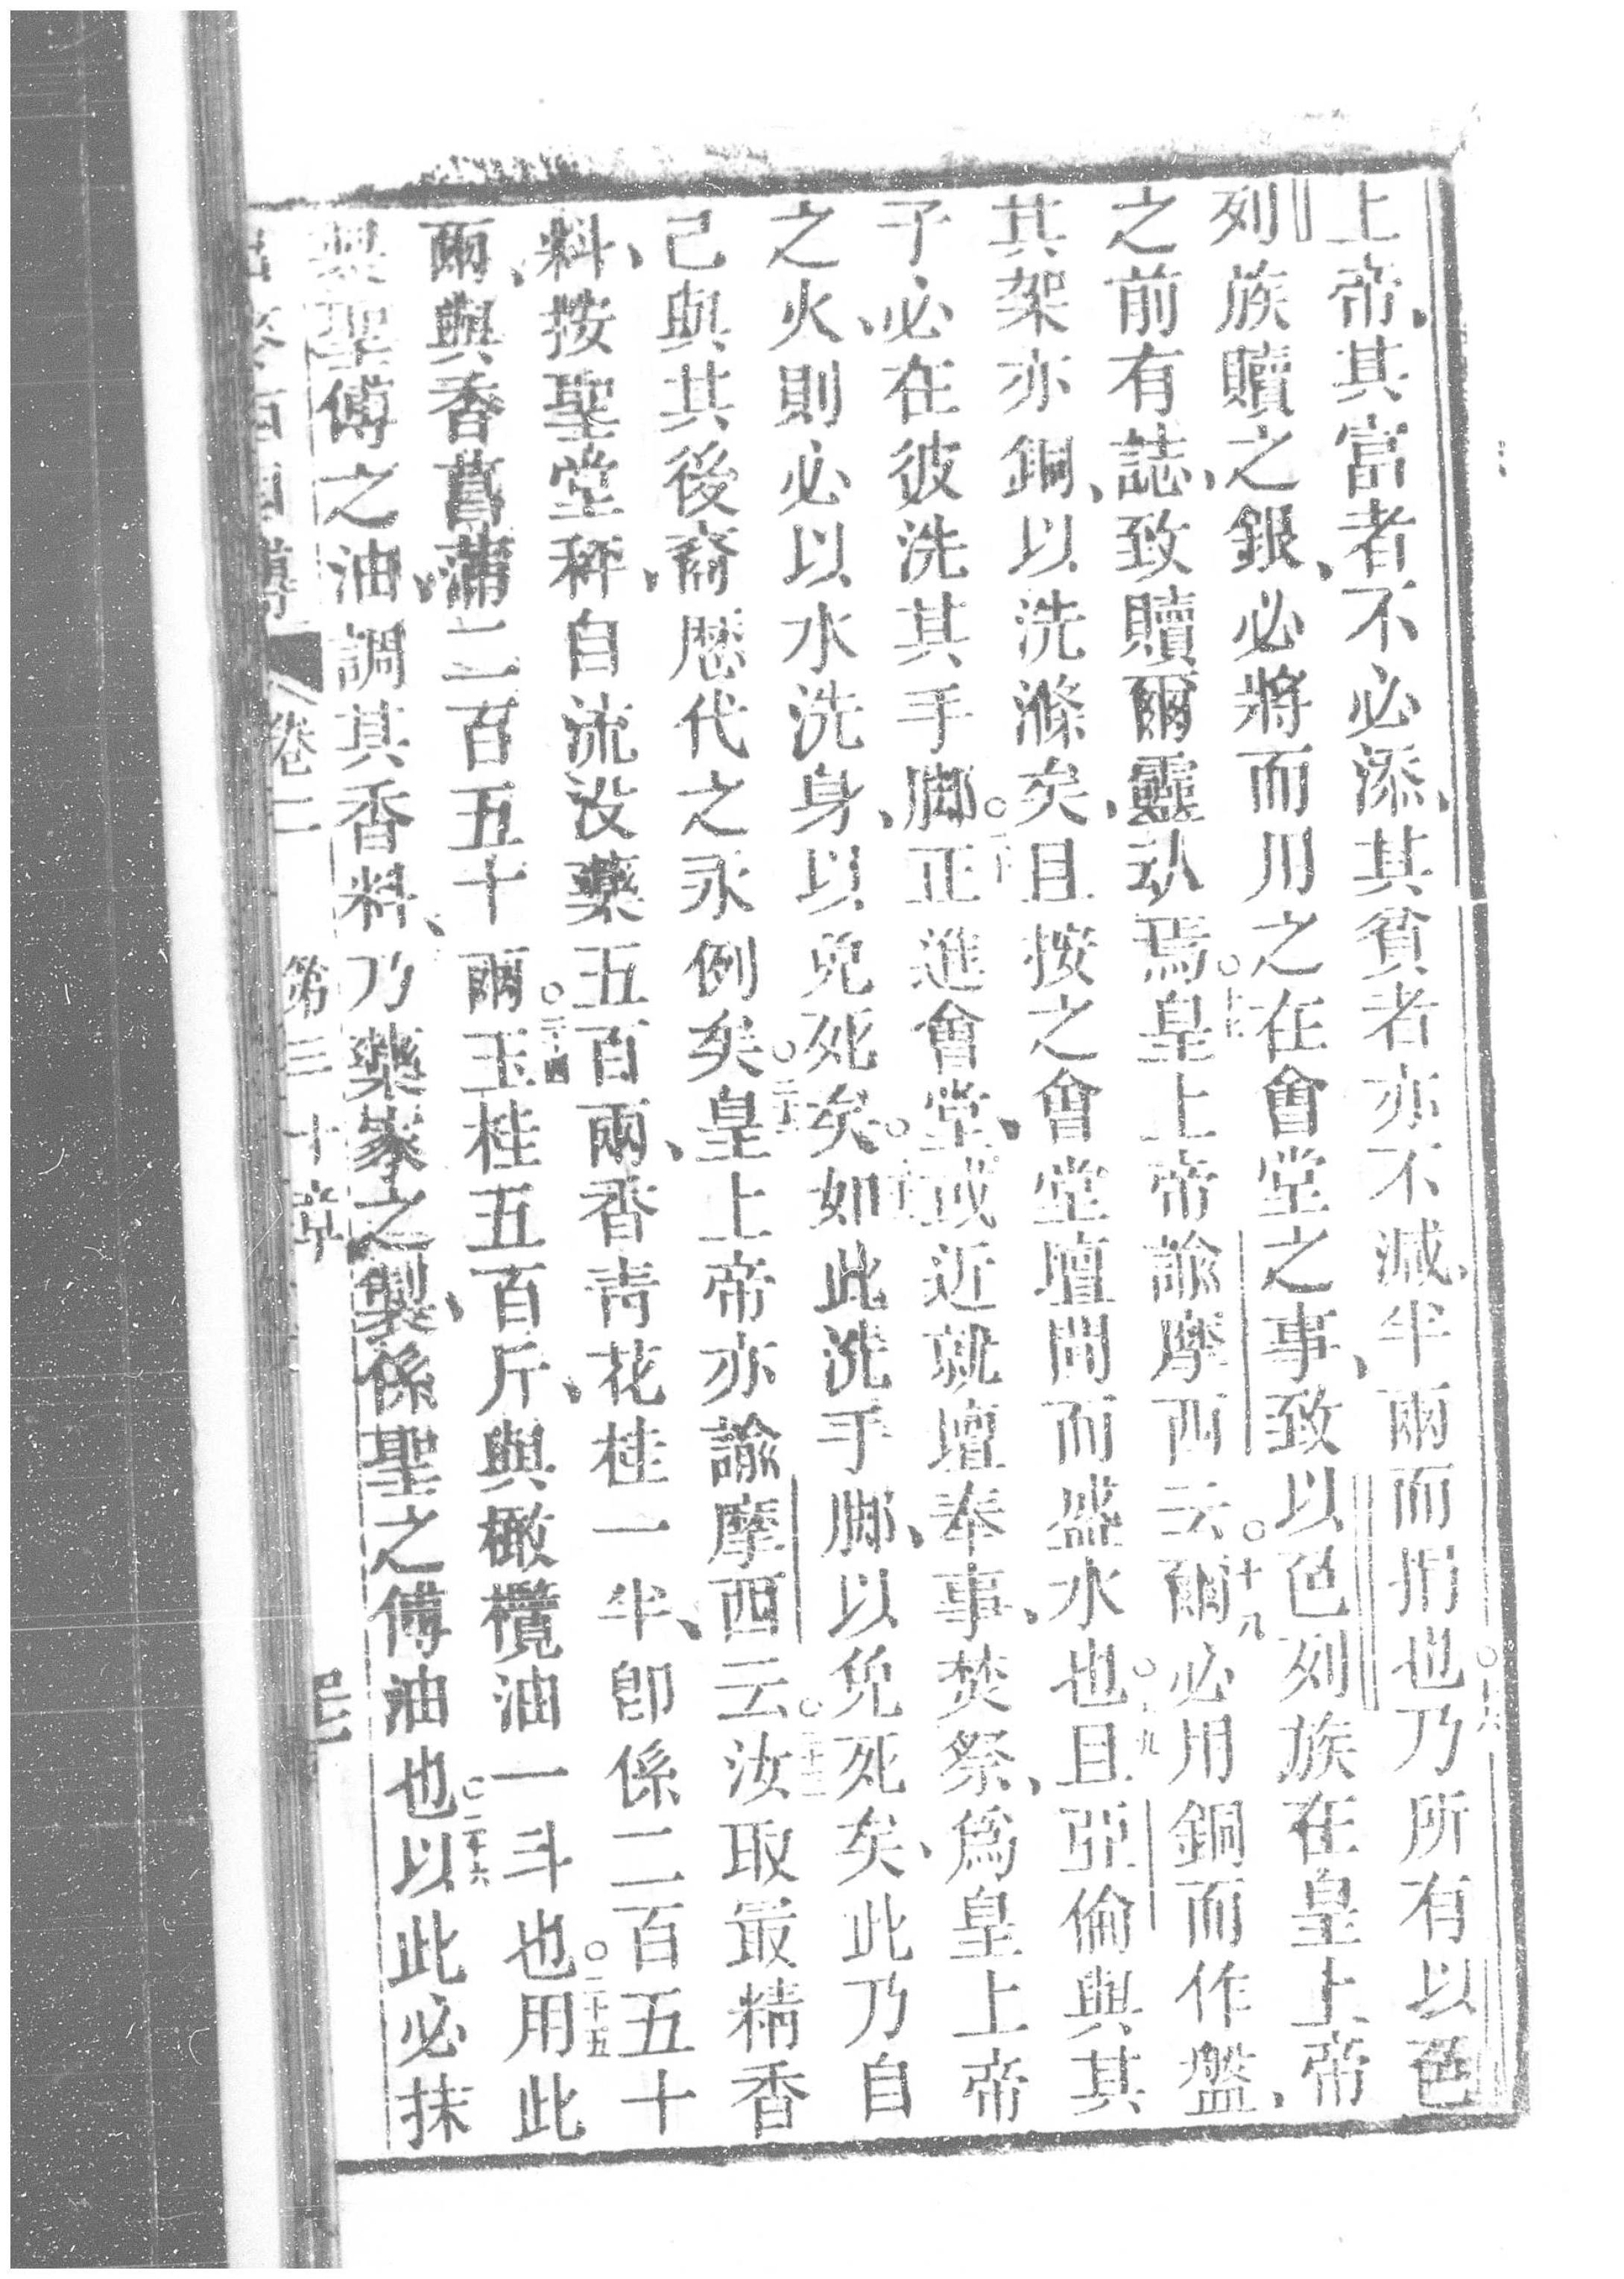 上帝、其富者不必添、其貧者亦不減、半兩而捐也○十六乃所有以色
列族贖之銀、必將而用之在會堂之事、致以色列族在皇上帝
之前有誌、致贖爾靈玅焉○十七皇上帝諭摩西云○十八爾必用銅而作盤、
其架亦銅、以洗滌矣、且按之會堂壇間而盛水也○十九且亞倫與其
子必在彼洗其手脚○二十正進會堂、或近就壇奉事、焚祭、爲皇上帝
之火、則必以水洗身、以免死矣○二十一如此洗手脚、以免死矣、此乃自
己與其後裔歷代之永例矣○二十二皇上帝亦諭摩西云○二十三汝取最精香
料、按聖堂秤、自流沒藥五百兩、香靑花桂一半、卽係二百五十
兩、與香菖蒲二百五十兩○二十四玉桂五百斤、與橄欖油一斗也○二十五用此
製聖傅之油、調其香料、乃藥家之製、係聖之傅油也○二十六以此必抹
卷二 第三十章